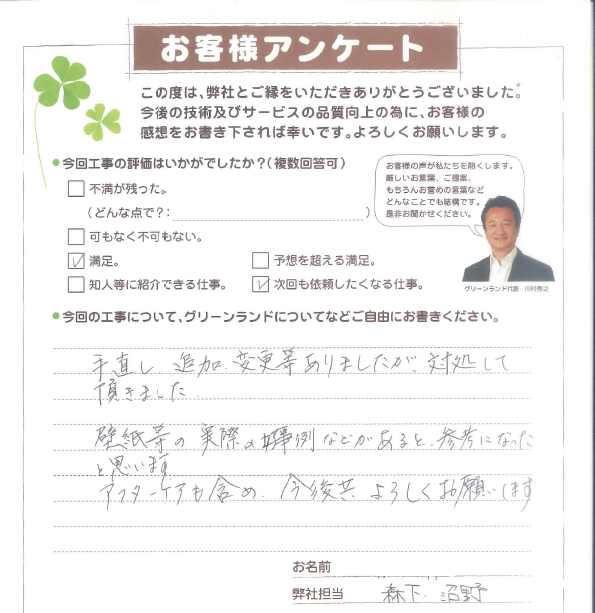 お客様アンケート
この度は、弊社とご縁をいただきありがとうございました。
今後の技術及びサービスの品質向上の為に、お客様の
感想をお書き下されば幸いです。よろしくお願いします。
今回工事の評価はいかがでしたか?(複数回答可)
不満が残った。
(どんな点で?: )
可もなく不可もない。
満足。
予想を超える満足。
知人等に紹介できる仕事。
次回も依頼したくなる仕事。
お客様の声が私たちを熱くします。
厳しいお言葉、ご提案、
もちろんお誉めの言葉など
どんなことでも結構です。
是非お聞かせください。
グリーンランド代表
今回の工事について、グリーンランドについてなどご自由にお書きください。
手直し、追加、変更等ありましたが、対処して
頂きました。
壁紙等の実際の事例などがあると、参考になった
と思います
アフターケアも含め、今後共よろしくお願いします
お名前
弊社担当 森下、沼野